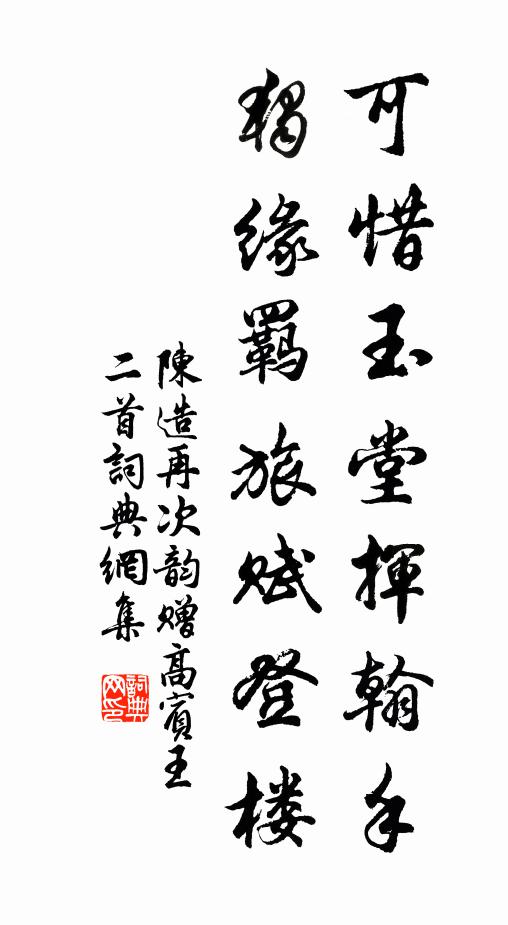 可惜玉堂揮翰手
獨緣羈旅賦登楼
陳造再次韵贈高賓王
二首詞典網集
詞典网印